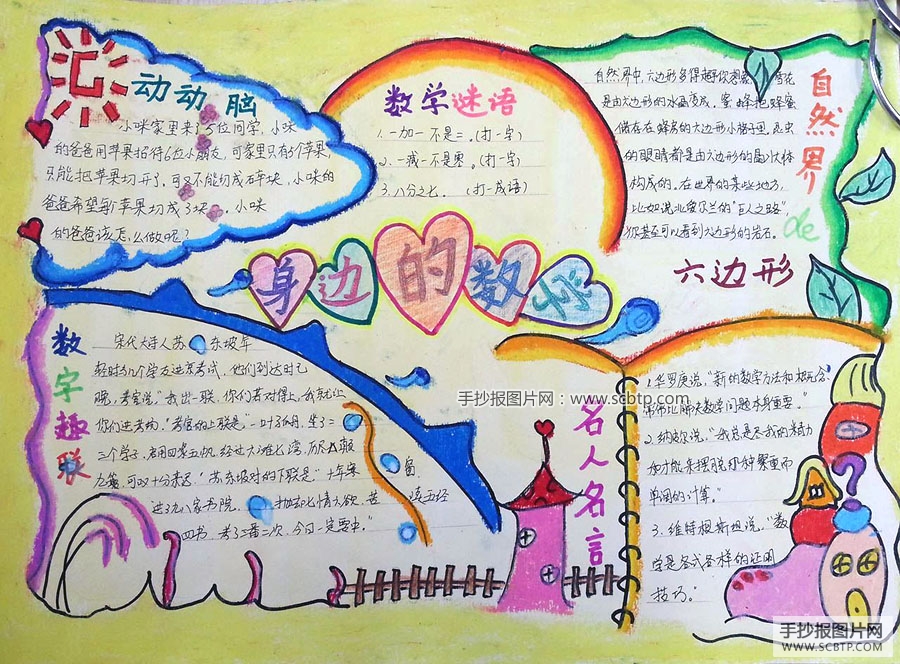 动动脑
小咪家里来了5位同学,小咪
的爸爸用苹果招待6位小朋友,可家里只有5个苹果,
只能把苹果切开了,可又不能切成碎块,小咪的
爸爸希望每个苹果切成3块。小咪
的爸爸该怎么做呢?
数学谜语
1.一加一不是二。(打一字)
2.一减一不是零。(打一字)
3.八分之七。(打一成语)
自然界
六边形
自然界中,六边形多得超乎你想象
是由六边形的水晶变成,蜜蜂把蜂蜜
储存在蜂房的六边形小格子里,昆虫
的眼睛都是由六边形的晶状体
构成的,在世界的某些地方,
比如说北爱尔兰的"巨人之路"
你甚至可以看到六边形的岩石。
身边的数学
数字趣联
宋代大诗人苏东坡年
轻时与几个学友进京考试,他们到达时已
晚,考官说"我出一联,你们若对得上,我就让
你们进考场,"考官的上联是"一叶孤舟,坐了二
三个学子,启用四桨五帆,经过六滩七湾,历尽八颠
九簸,可叹十分来迟。"苏东坡对的下联是"十年寒窗
进了九八家书院,抛却七情六欲,苦读五经
四书,考了三番二次,今日一定要中。"
手抄报图片网:www.scbtp.com
名人名言
1.华罗庚说,"新的数学方法和概念,
常常比解决数学问题本身重要。"
2.纳皮尔说,"我总是尽我的精力
和才能来摆脱那种繁重而
单调的计算。"
3.维特根斯坦说,"数
学是各式各样的证明
技巧。"
手抄报图片网
WWW.SCBTP.COM